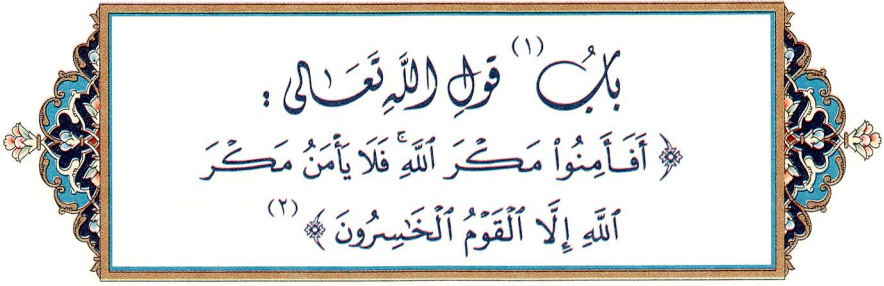 بَابُ (١) قَوْلِ اللَّهِ تَعَالَى :
﴿ أَفَأَمِنُوا۟ مَكْرَ ٱللَّهِ ۚ فَلَا يَأْمَنُ مَكْرَ
ٱللَّهِ إِلَّا ٱلْقَوْمُ ٱلْخَـٰسِرُونَ ﴾ (٢)